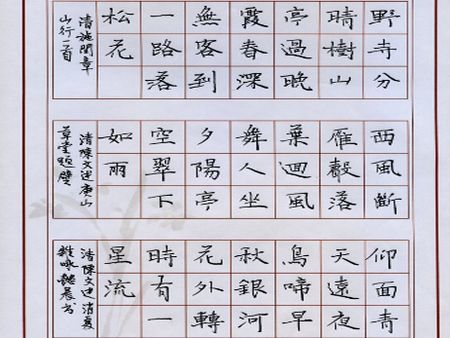 野寺分
晴樹山
亭過晚
霞春深
無客到
一路落
松花
清施閏章
山行一首
西風斷
雁聲落
葉迴風
舞人坐
夕陽亭
空翠下
如雨
清陳文述山
草堂題壁
仰面青
天遠夜
鳥啼早
秋銀河
花外轉
時有一
星流
清陳文述消夏
雜咏晨書